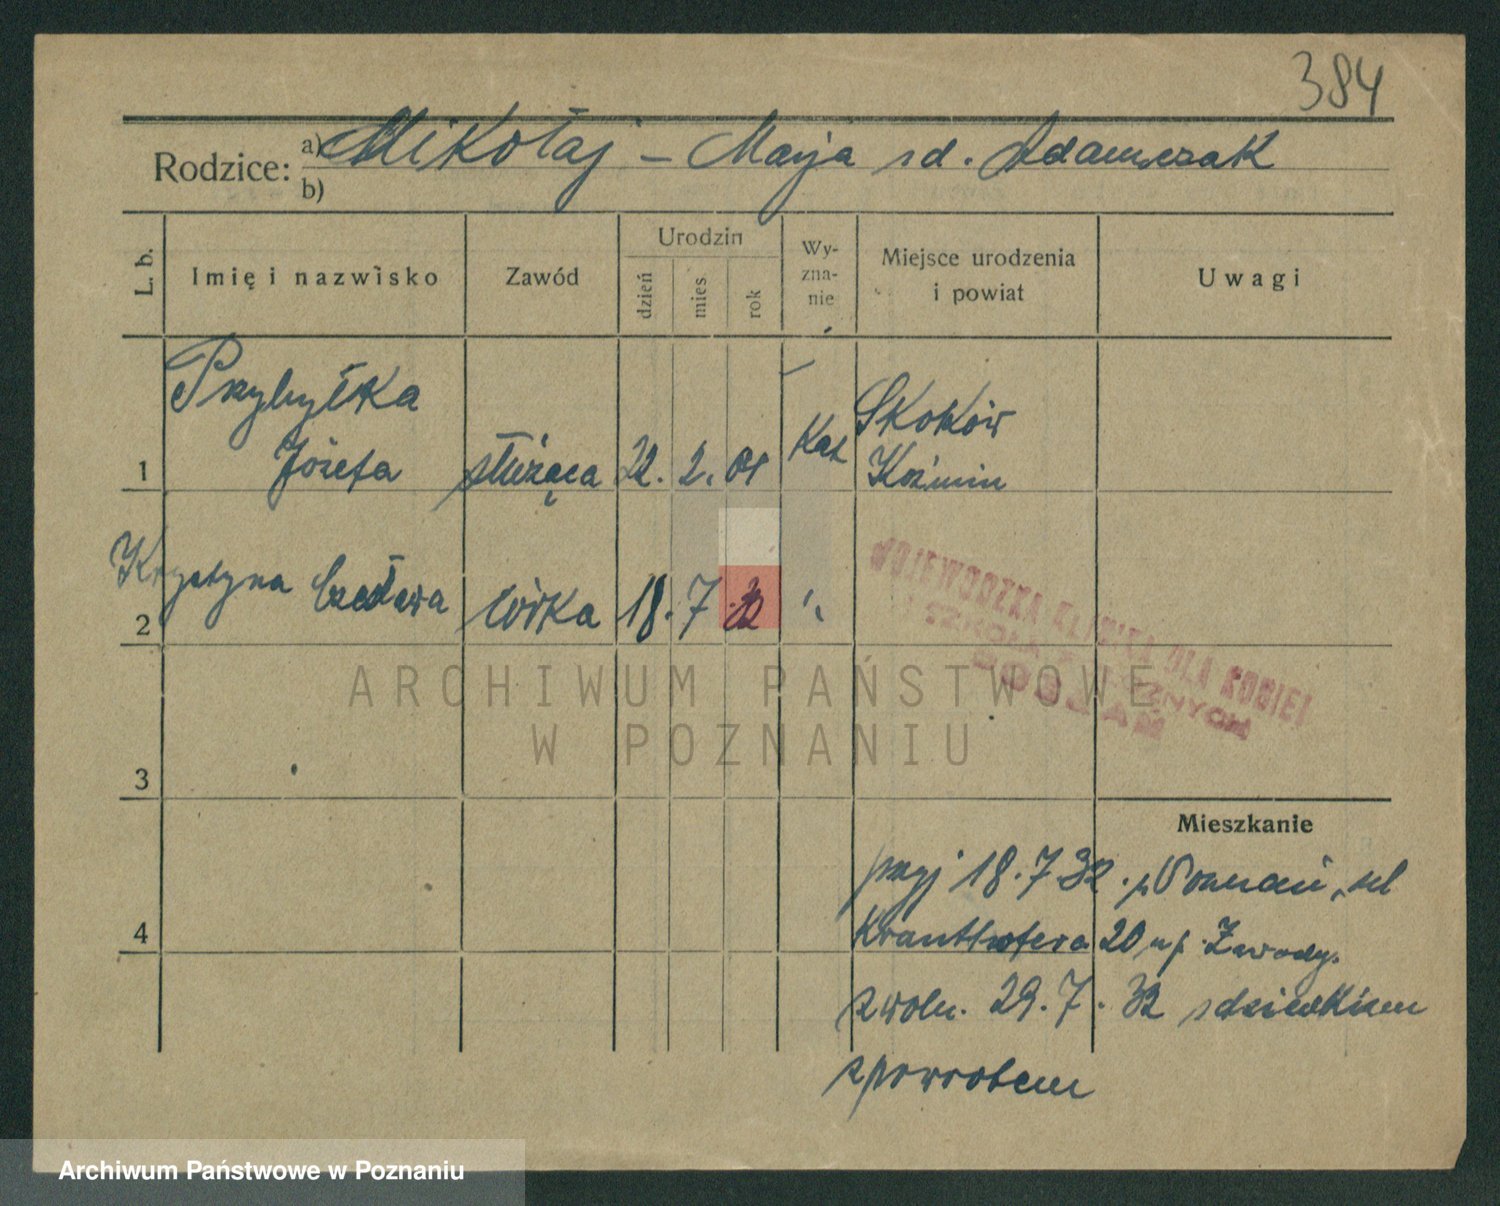 384
Rodzice: a) Mikołaj – Marja z d. Adamczak
b)
L. b.
Imię i nazwisko
Zawód
Urodzin
dzień
mies
rok
Wy-
zna-
nie
Miejsce urodzenia
i powiat
Uwagi
Przybyłka
Józefa
1
służąca
22. 2. 01
Kat
Skoków
Koźmin
Krystyna Czesława
2
córka
18. 7. 32
"
WOJEWÓDZKA KLINIKA DLA KOBIET
SZKOŁA POŁOŻNYCH
POZNAŃ
3
4
Mieszkanie
przyj 18. 7. 32. z Poznań, ul
Kranthofera 20 u p. Zawady.
zwoln. 29. 7. 32 z dzieckiem
zpowrotem
ARCHIWUM PAŃSTWOWE
W POZNANIU
Archiwum Państwowe w Poznaniu